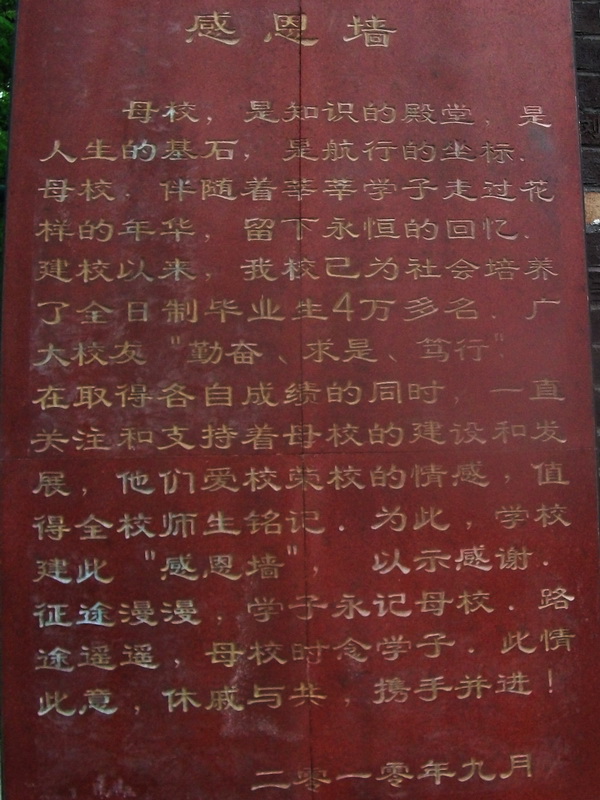 感恩墙
母校，是知识的殿堂，是
人生的基石，是航行的坐标．
母校．伴随着莘莘学子走过花
样的年华，留下永恒的回忆．
建校以来，我校已为社会培养
了全日制毕业生4万多名．广
大校友"勤奋、求是、笃行"．
在取得各自成绩的同时，一直
关注和支持着母校的建设和发
展，他们爱校荣校的情感，值
得全校师生铭记．为此，学校
建此"感恩墙"，以示感谢．
征途漫漫，学子永记母校．路
途遥遥，母校时念学子．此情
此意，休戚与共，携手并进！
二零一零年九月